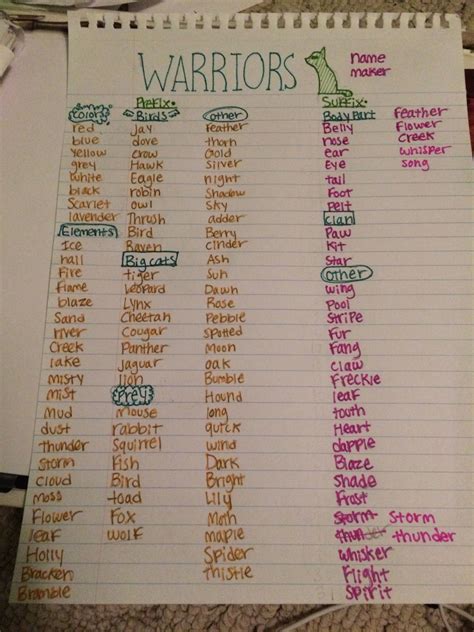 WARRIORS
name
maker
Prefix:
Color
red
blue
Yellow
grey
White
black
Scarlet
lavender
Elements
Ice
hail
Fire
flame
blaze
Sand
river
Creek
lake
misty
mist
Mud
dust
thunder
Storm
Cloud
moss
Flower
leaf
Holly
Bracken
Bramble
Birds
Jay
dove
crow
Hawk
Eagle
robin
owl
Thrush
Bird
Raven
Big cats
tiger
Leopard
Lynx
Cheetah
Cougar
Panther
jaguar
lion
Prey
mouse
rabbit
Squirrel
Fish
Bird
toad
Fox
wolf
other
Feather
thorn
Gold
Silver
night
Shadow
Sky
adder
Berry
cinder
Ash
Sun
Dawn
Rose
Pebble
spotted
Moon
oak
Bumble
Hound
long
quick
wind
Dark
Bright
Lily
Moth
maple
Spider
thistle
Suffix:
Body Part
Belly
nose
ear
Eye
tail
Foot
Pelt
clan
Paw
Kit
Star
other
wing
Pool
Stripe
Fur
Fang
claw
Freckle
leaf
tooth
Heart
dapple
Blaze
Shade
Frost
Storm Storm
thunder thunder
whisker
Flight
Spirit
feather
Flower
Creek
whisper
song